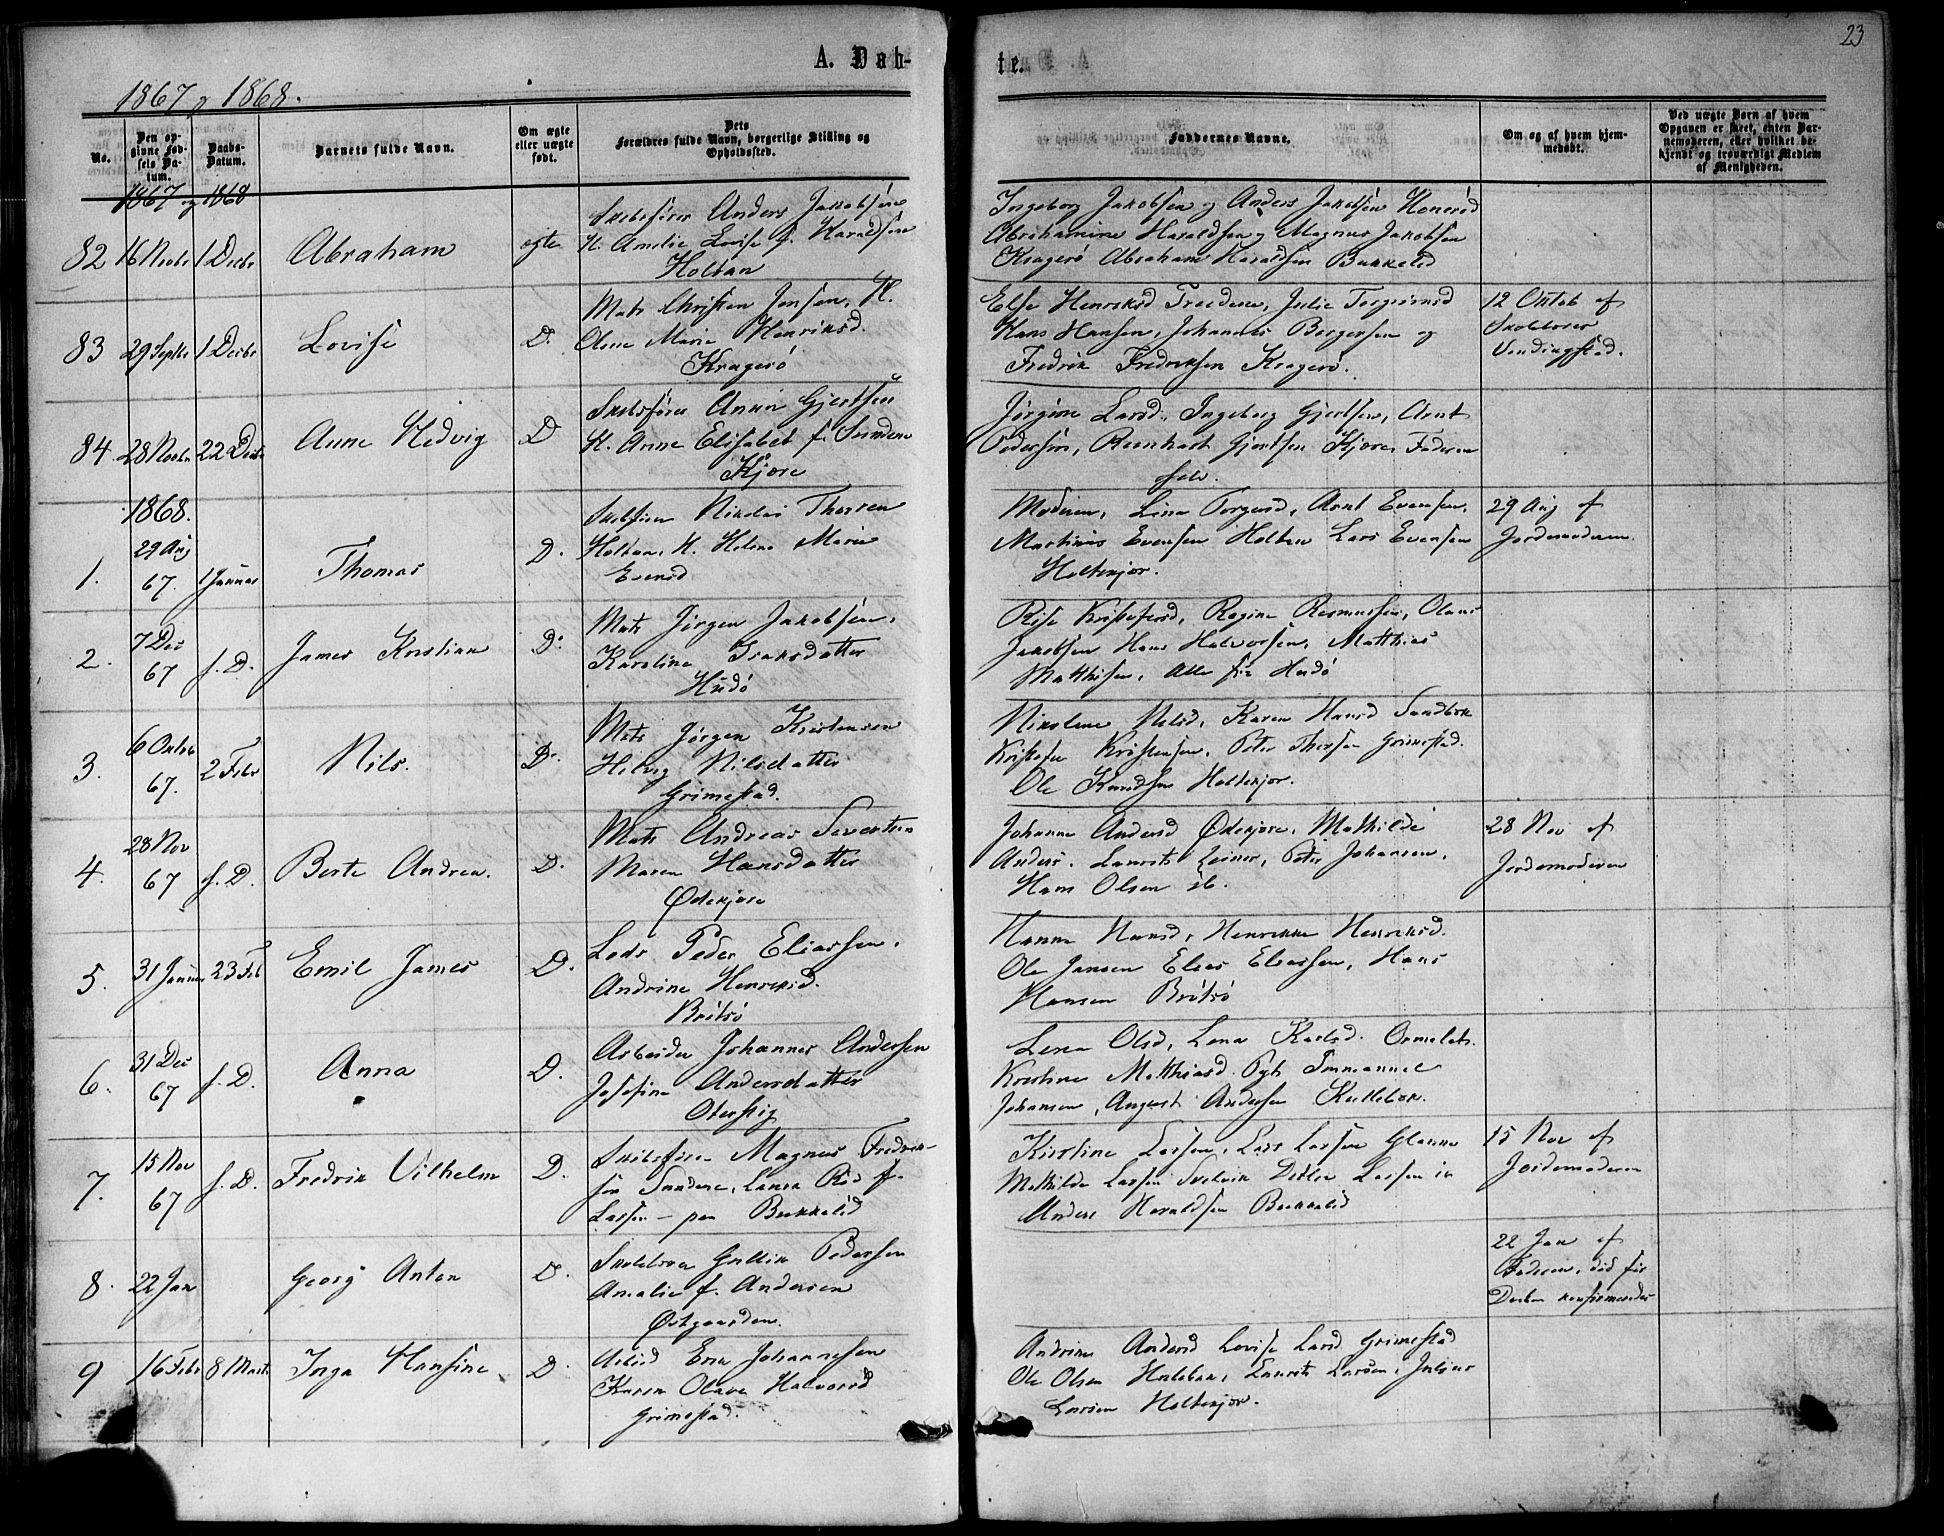 23
A. Døb-
te.
1867 og 1868.
No.
Den opginne Fødsels Datum.
Daabs-Datum.
Barnets fulde Navn.
Om ægte eller uægte født.
Dets Forældres fulde Navn, borgerlige Stilling og Opholdssted.
Faddernes Navne.
Om og af hvem hjemmedøbt.
Ved uægte Børn af hvem Opgaven er skeet, enten Barnemoderen, eller hvilket bekjendt og troværdigt Medlem af Menigheden.
1867 og 1868
82 16 Novbr 1 Decbr Abraham ægte
Skibsfører Anders Jakobsen
H. Amelie Lovise f. Haraldsen
Holtan
Ingeborg Jakobsen og Anders Jakobsen
Abrahamine Haraldsen og Magnus Jakobsen
Kragerø Abraham Haraldsen Bekkelid
83 29 Septbr 1 Decbr Lovise D.
Mats Christen Jensen, H.
Olene Marie Henriksd.
Kragerø
Else Henriksd
Hans Hansen, Johannes Borgersen og
Fredrik Fredriksen Kragerø.
12 Oktob af
Skolelærer
Vendingstad.
84. 28 Novbr 22 Decbr Anne Hedvig D
Skibsfører Gjertsen
H. Anne Elisabet f. Sundene
Kjøre
Jørgine Larsd. Ingeborg Gjertsen, Arnt
Pedersen, Reinhart Gjertsen Kjøre, Faderen
selv.
1868.
1. 29 Aug 67. 1 Januar Thomas D.
Skibsfører Nikolai Thoresen
Holtan, H. Helene Marie
Evensd
Moderen, Lina Torgersd, Arnt Evensen,
Martinius Evensen Holtan Lars Evensen
Holtekjær.
29 Aug af
Jordemoderen
2. 7 Dec 67 s. D. James Kristian D.
Mats Jørgen Jakobsen,
Karoline Isaksdatter
Hudø
Kristofersd, Regine Rasmussen, Olaus
Jakobsen Hans Halvorsen, Matthias
Matthisen, Alle fra Hudø
3. 6 Oktob 67. 2 Febr Nils. D.
Mats Jørgen Kristensen
Helvig Nilsdatter
Grimestad.
Nikoline Nilsd, Karen Hansd Sandbæk
Kristofer Kristensen, Peter Thorsen Grimestad.
Ole Knudsen Holtekjær.
4. 28 Nov 67 s. D. Berte Andrea. D.
Mats Andreas Severtsen
Maren Hansdatter
Ødekjære
Johanne Andersd Ødekjære, Mathilde
Anders. Laurits, Peter Johansen,
Hans Olsen ib.
28 Nov af
Jordemoderen
5. 31 Januar 23 Feb Emil James D.
Lods Peder Eliassen,
Andrine Henriksd.
Brøtsø
Hanna Hansd, Henrikke Henriksd.
Ole Jansen Elias Eliassen, Hans
Hansen Brøtsø
6. 31 Dec 67 s. D. Anna D.
Arbeider Johannes Andersen
Josefine Andersdatter
Oterstig
Lena Olsd, Lena Karlsd. Ormelet.
Kristine Matthiasd. Pgt. Immanuel
Johansen, August Andersen Kullebæk.
7. 15 Nov 67 s. D. Fredrik Vilhelm D.
Skibsfører Magnus Fredrik-
sen Sundene, Laura Röd f.
Larsen - paa Bekkelid
Kirstine Larsen, Lars Larsen
Mathilde Larsen Svelvik Larsen ib
Anders Haraldsen Bekkelid
15 Nov af
Jordemoderen
8. 22 Jan Georg Anton D.
Skolelærer Gullik Pedersen
Amalie f. Andersen
Østgaarden.
22 Jan af
Faderen, død før
Daaben konfirmeredes
9 16 Febr 8 Marts Inga Hansine D.
Arbeid Johannesen
Karen Olava Halvorsd
Grimestad.
Andrine Andersd Lovise Larsd Grimestad
Ole Olsen, Laurits Larsen, Julius
Larsen Holtekjær.